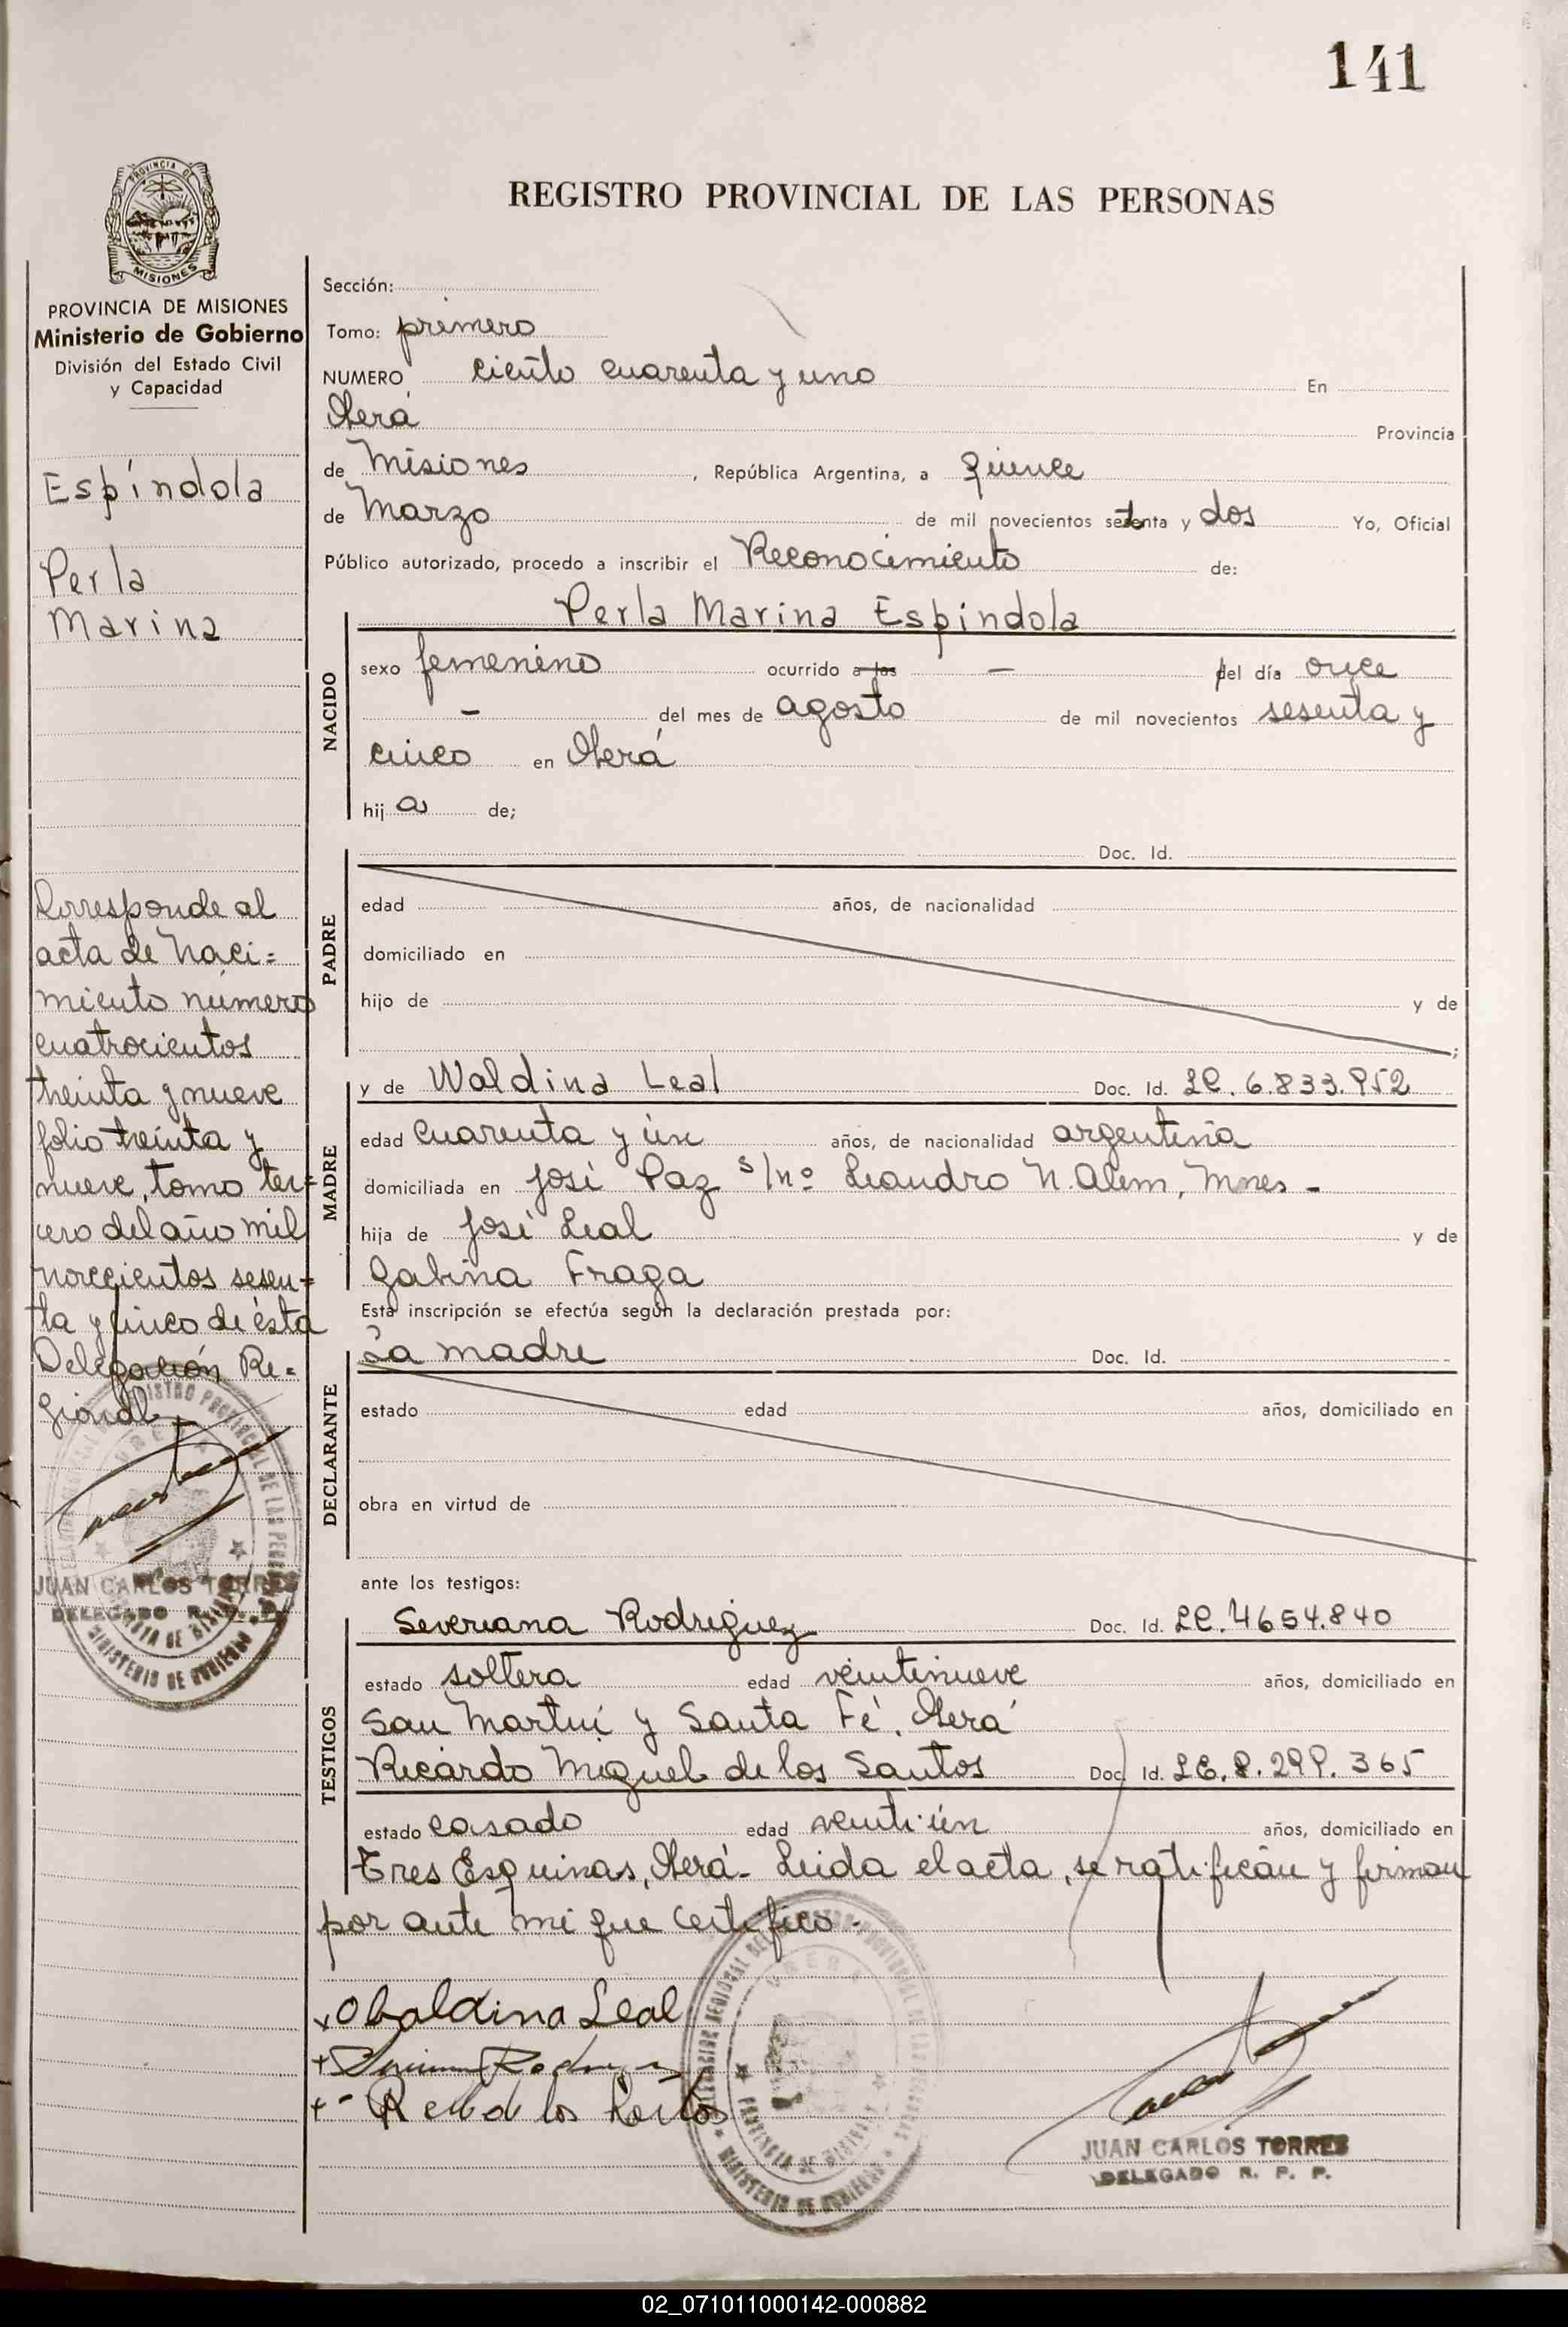 141
REGISTRO PROVINCIAL DE LAS PERSONAS
PROVINCIA DE MISIONES
Ministerio de Gobierno
División del Estado Civil
y Capacidad
Espíndola
Perla
Marina
Corresponde al
acta de Naci=
miento número
cuatrocientos
treinta y nueve
folio treinta y
nueve, tomo ter=
cero del año mil
novecientos sesen=
ta y cinco de ésta
Delegación Re=
gional
JUAN CARLOS TORRES
DELEGADO R. P. P.
Sección:
Tomo: primero
NUMERO ciento cuarenta y uno En
Oberá Provincia
de Misiones, República Argentina, a quince
de Marzo de mil novecientos setenta y dos Yo, Oficial
Público autorizado, procedo a inscribir el Reconocimiento de:
Perla Marina Espíndola
NACIDO
sexo femenino ocurrido a las - del día once
- del mes de agosto de mil novecientos sesenta y
cinco en Oberá
hija de;
PADRE
Doc. Id.
edad años, de nacionalidad
domiciliado en
hijo de y de
;
MADRE
y de Waldina Leal Doc. Id. LC. 6.833.952
edad cuarenta y un años, de nacionalidad argentina
domiciliada en José Paz s/nº Leandro N. Alem, Mnes -
hija de José Leal y de
Gabina Fraga
Esta inscripción se efectúa según la declaración prestada por:
DECLARANTE
La madre Doc. Id.
estado edad años, domiciliado en
obra en virtud de
ante los testigos:
TESTIGOS
Severiana Rodriguez Doc. Id. LC. 4654.840
estado soltera edad veintinueve años, domiciliado en
San Martín y Santa Fé, Oberá
Ricardo Miguel de los Santos Doc. Id. LE. 8.299.365
estado casado edad veintiún años, domiciliado en
Tres Esquinas, Oberá - Leida el acta, se ratifican y firman
por ante mi que certifico -
Obaldina Leal
de los Santos
JUAN CARLOS TORRES
DELEGADO R. P. P.
02_071011000142-000882